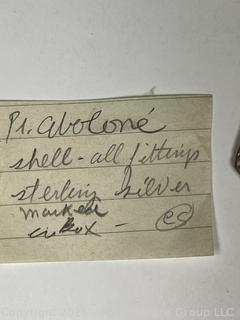 Pr. aboloné
shell - all fittings
sterling silver
marked
in box -